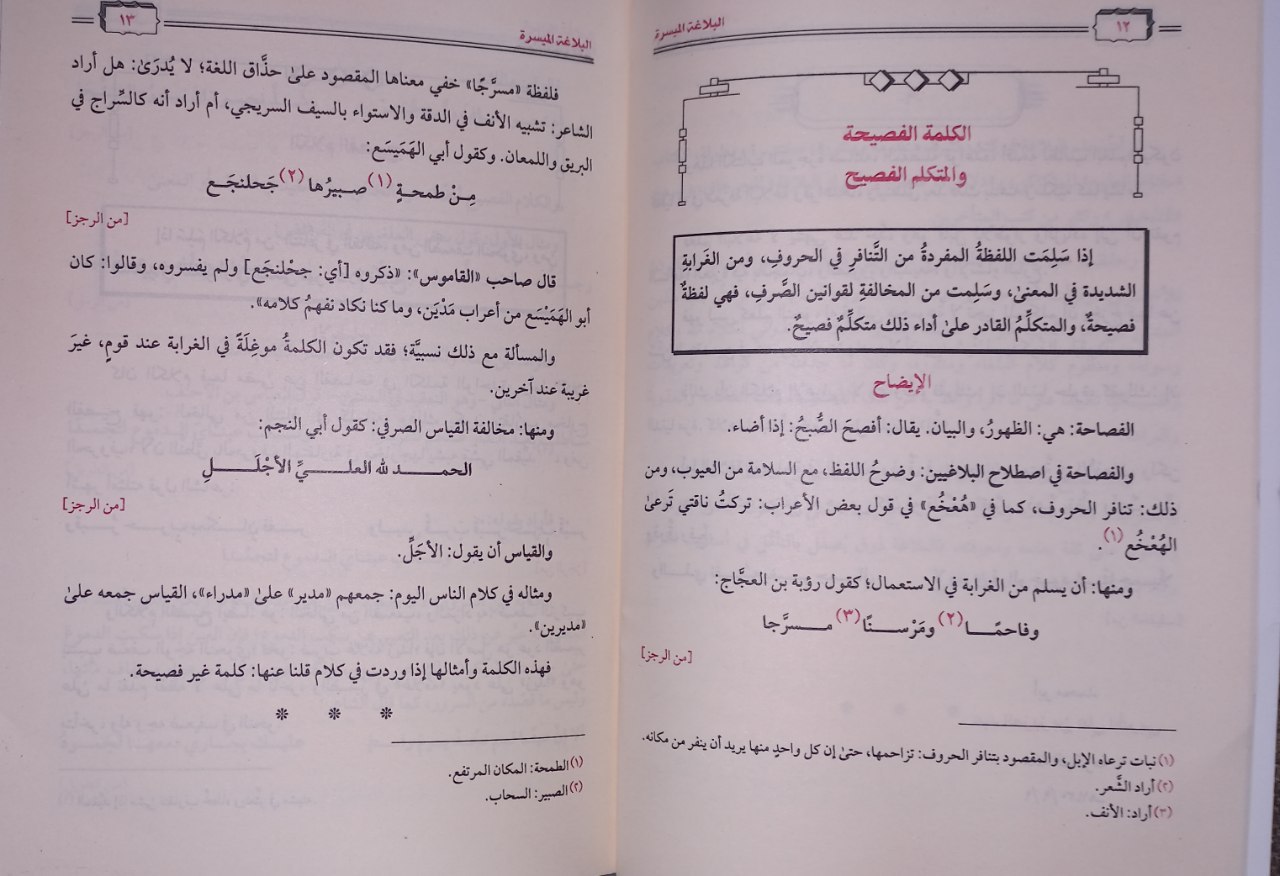 ١٢
البلاغة الميسرة
الكلمة الفصيحة
والمتكلم الفصيح
إذا سَلِمَت اللفظةُ المفردةُ من التَّنافرِ في الحروفِ، ومن الغَرابةِ
الشديدة في المعنىٰ، وسَلِمت من المخالفةِ لقوانين الصَّرفِ، فهي لفظةٌ
فصيحةٌ، والمتكلِّمُ القادر علىٰ أداء ذلك متكلِّمٌ فصيحٌ.
الإيضاح
الفصاحة: هي: الظهورُ، والبيان. يقال: أفصحَ الصُّبحُ: إذا أضاء.
والفصاحة في اصطلاح البلاغيين: وضوحُ اللفظ، مع السلامة من العيوب، ومن
ذلك: تنافر الحروف، كما في «هُعْخُع» في قول بعض الأعراب: تركتُ ناقتي تَرعىٰ
الهُعْخُع(١).
ومنها: أن يسلم من الغرابة في الاستعمال؛ كقول رؤبة بن العجَّاج:
وفاحمًــا(٢) ومَرْســـنًا(٣) مـــسرَّجا
[من الرجز]
(١) نبات ترعاه الإبل، والمقصود بتنافر الحروف: تزاحمها، حتىٰ إن كل واحدٍ منها يريد أن ينفر من مكانه.
(٢) أراد الشَّعر.
(٣) أراد: الأنف.
١٣
البلاغة الميسرة
فلفظة «مسرَّجًا» خفي معناها المقصود علىٰ حذَّاق اللغة؛ لا يُدرَىٰ: هل أراد
الشاعر: تشبيه الأنف في الدقة والاستواء بالسيف السريجي، أم أراد أنه كالسِّراج في
البريق واللمعان. وكقول أبي الهَمَيسَع:
مِـنْ طمحـةٍ(١) صـبيرُها(٢) جَحلنجَع
[من الرجز]
قال صاحب «القاموس»: «ذكروه [أي: جحْلنجَع] ولم يفسروه، وقالوا: كان
أبو الهَمَيْسَع من أعراب مَدْيَن، وما كنا نكاد نفهمُ كلامه».
والمسألة مع ذلك نسبيَّة؛ فقد تكون الكلمةُ موغِلَةً في الغرابة عند قومٍ، غيرَ
غريبة عند آخرين.
ومنها: مخالفة القياس الصرفي: كقول أبي النجم:
الحمـــد لله العلـــــيِّ الأجْلَـــــلِ
[من الرجز]
والقياس أن يقول: الأجَلِّ.
ومثاله في كلام الناس اليوم: جمعهم «مدير» علىٰ «مدراء»، القياس جمعه علىٰ
«مديرين».
فهذه الكلمة وأمثالها إذا وردت في كلام قلنا عنها: كلمة غير فصيحة.
(١) الطمحة: المكان المرتفع.
(٢) الصبير: السحاب.